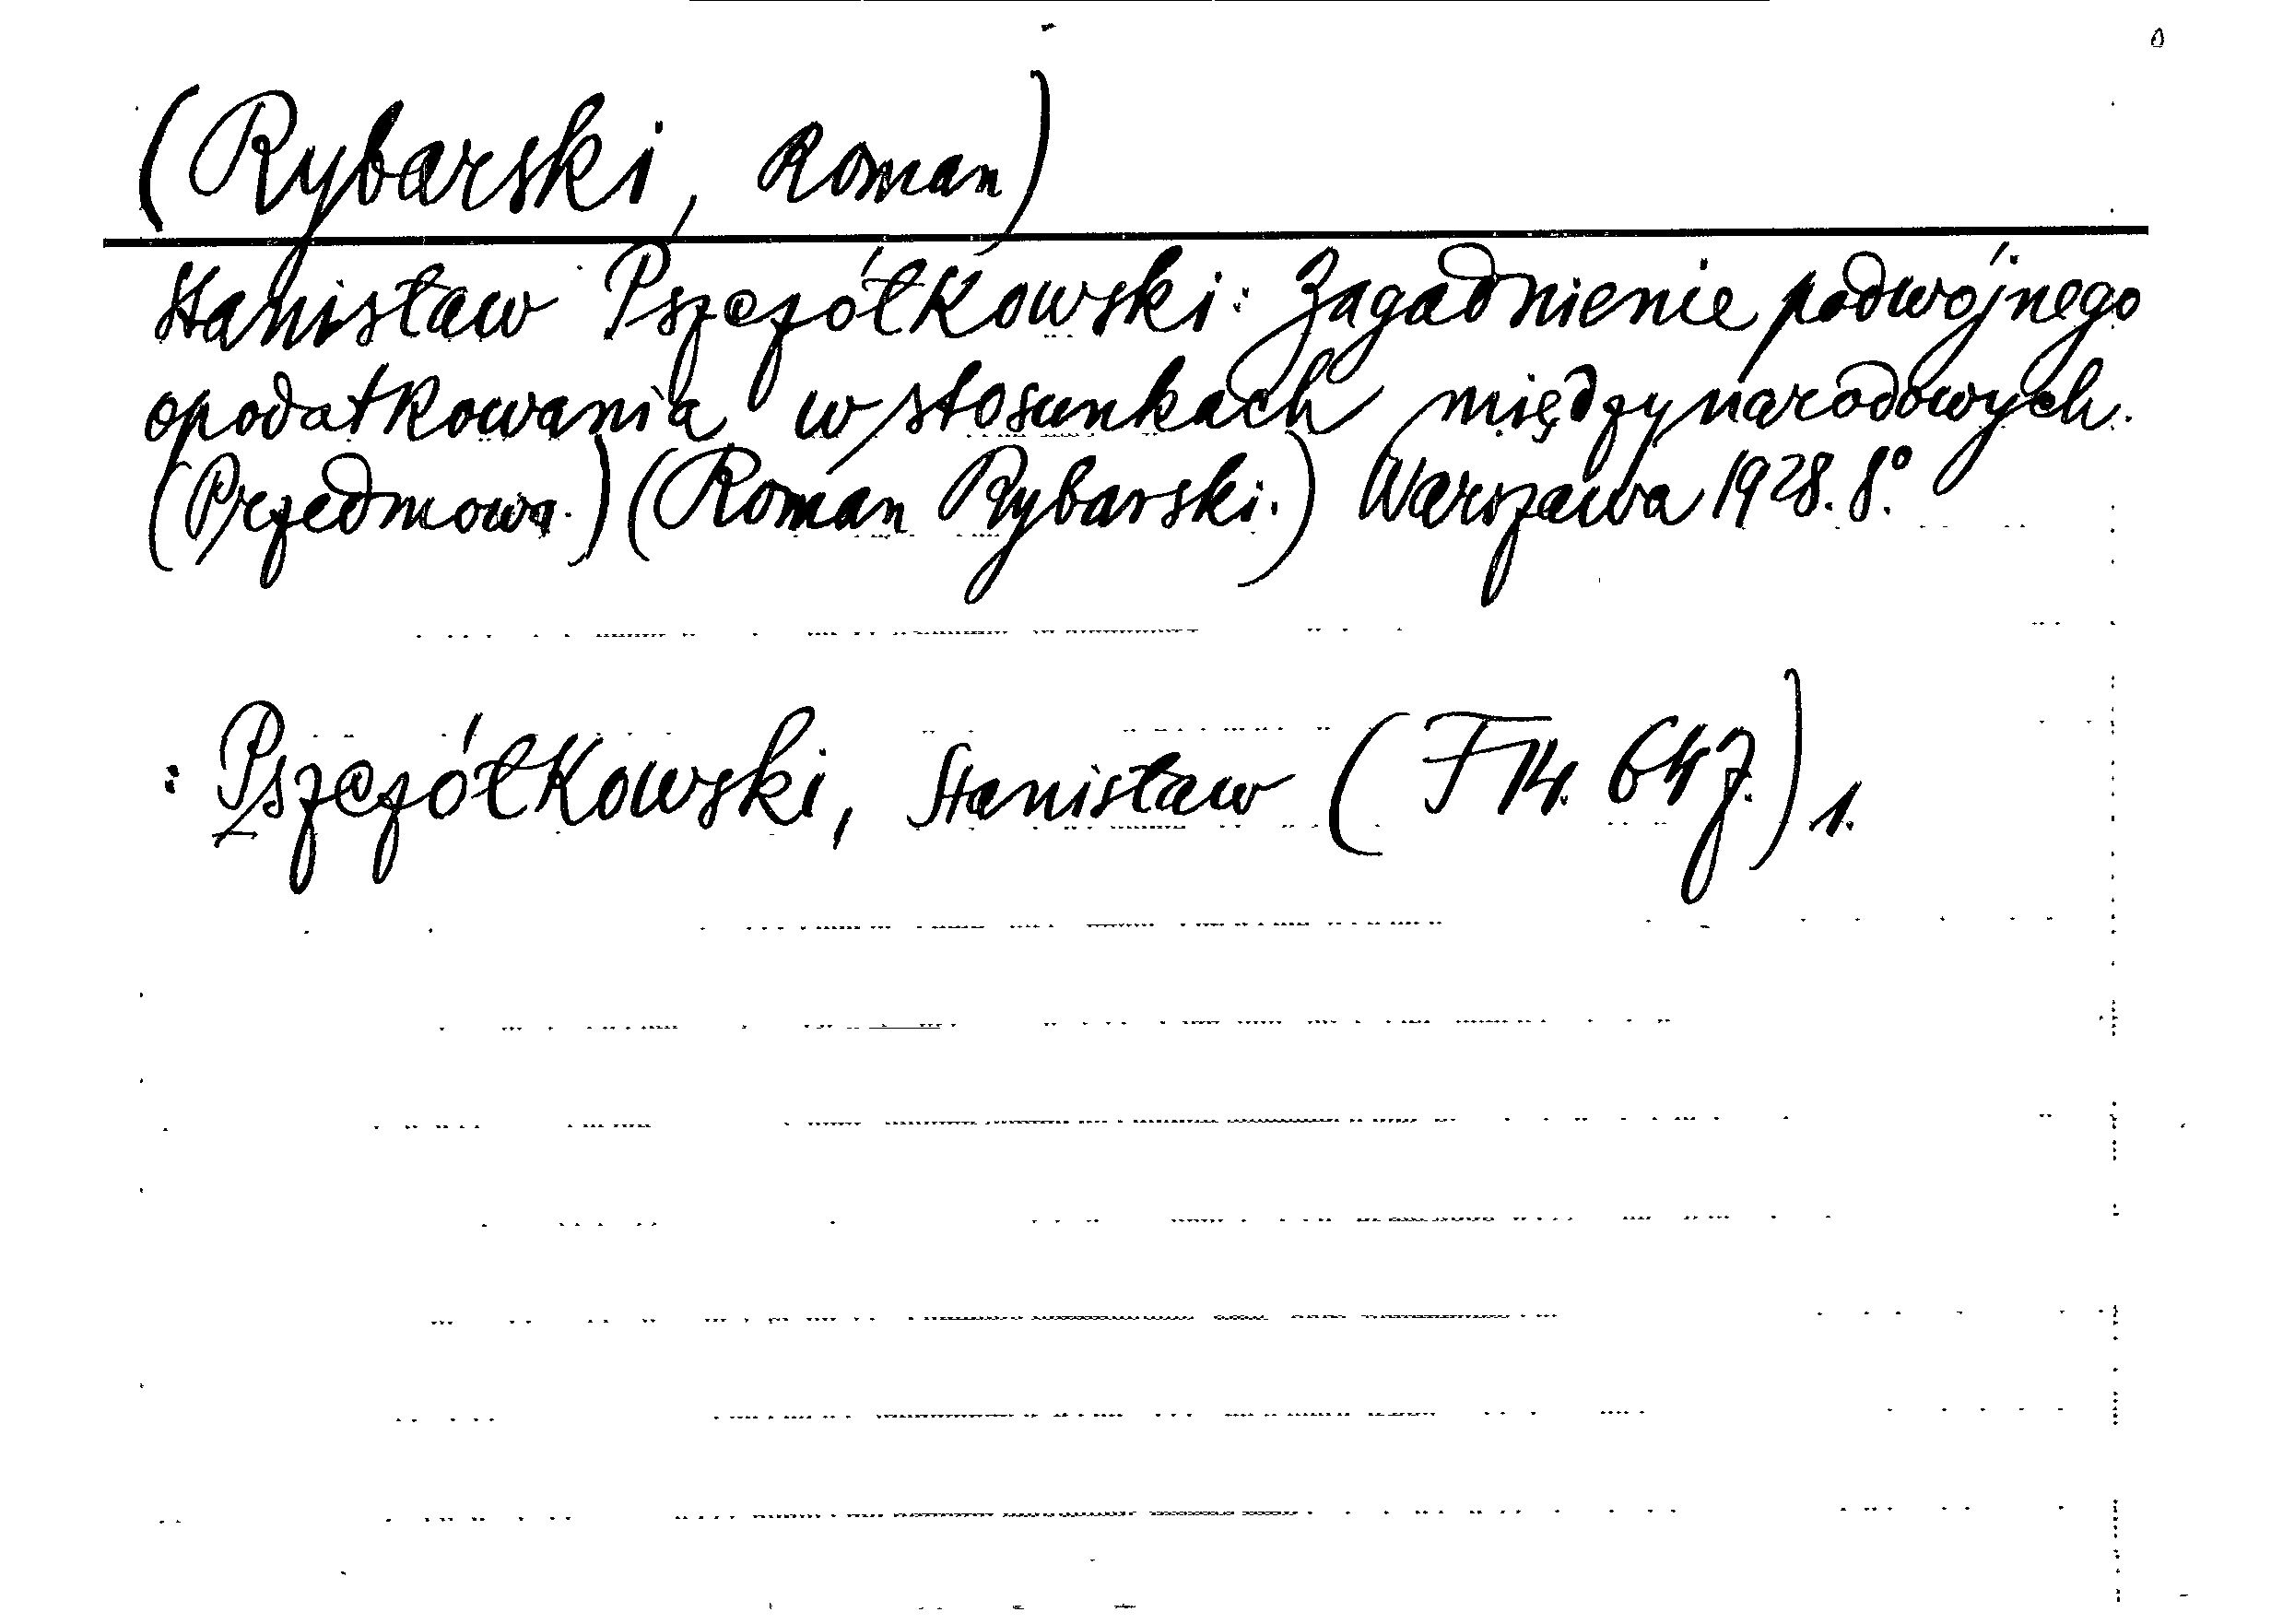 (Rybarski, Roman)
Stanisław Pszczółkowski: Zagadnienie podwójnego
opodatkowania w stosunkach międzynarodowych.
(Przedmowa.) (Roman Rybarski.) Warszawa 1928. 8°.
: Pszczółkowski, Stanisław (F 14. 647.) 1.